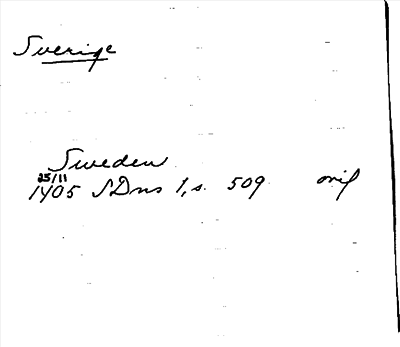 Sverige
Sweden
25/11
1405 SDns 1, s. 509 orig